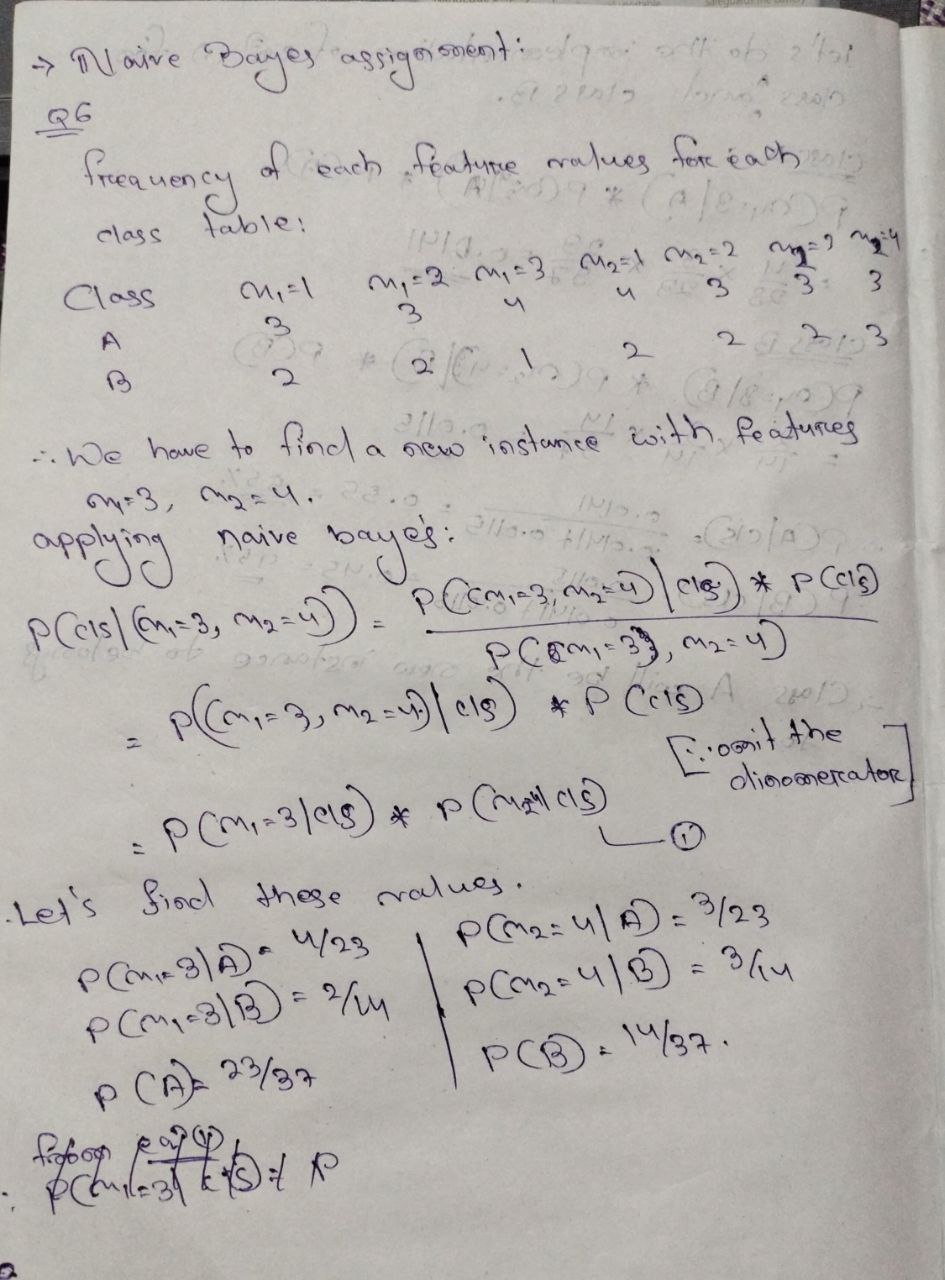 → Naive Bayes assignment:
Q6
frequency of each feature values for each
class table:
Class x₁=1 x₁=2 x₁=3 x₂=1 x₂=2 x₂=3 x₂=4
A 3 3 4 4 3 3 3
B 2 2 1 2 2 2 3
∴ We have to find a new instance with features
x₁=3, x₂=4.
applying naive bayes:
P(cls|(x₁=3, x₂=4)) = P((x₁=3, x₂=4)|cls) * P(cls) / P((x₁=3), x₂=4)
= P((x₁=3, x₂=4)|cls) * P(cls)
[∵ omit the
dinomerator]
= P(x₁=3|cls) * P(x₂=4|cls)
①
Let's find these values.
P(x₁=3|A) = 4/23 P(x₂=4|A) = 3/23
P(x₁=3|B) = 2/14 P(x₂=4|B) = 3/14
P(A) = 23/37 P(B) = 14/37.